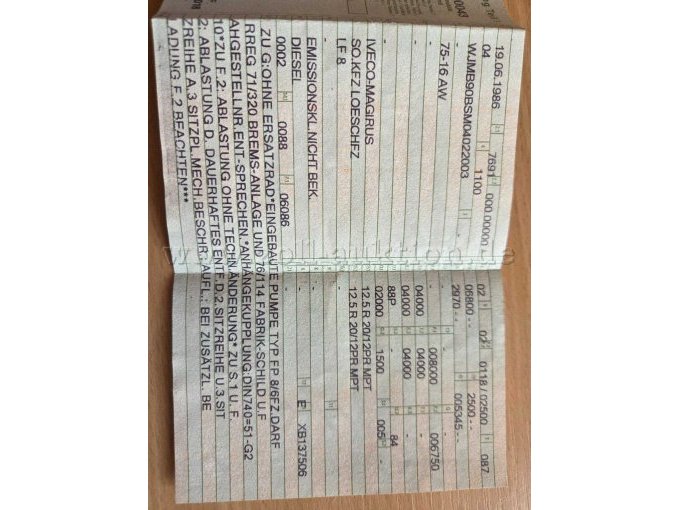 19.06.1986 7691 000 00000 02 02 0118 / 02500 087
04 1100 06800 - - 2500 - -
WJMB90BSM04022003 - 2970 - - 005345 - -
75-16 AW - 008000 006750
04000 04000 -
04000 04000 -
IVECO-MAGIRUS 88P 84
SO.KFZ LOESCHFZ 02000 1500 005
LF 8 12.5 R 20/12PR MPT
12.5 R 20/12PR MPT
EMISSIONSKL.NICHT BEK.
DIESEL E XB137506
0002 0088 06086
ZU G:OHNE ERSATZRAD*EINGEBAUTE PUMPE TYP FP 8/6FZ.DARF
RREG 71/320 BREMS-ANLAGE UND 76/114 FABRIK-SCHILD U.F
AHGESTELLNR.ENT-SPRECHEN.*ANHÄNGEKUPPLUNG:DIN740=51-G2
10*ZU F.2: ABLASTUNG OHNE TECHN.ÄNDERUNG* ZU S.1 U. F.
2: ABLASTUNG D. DAUERHAFTES ENTF.D.2.SITZREIHE U.3.SIT
ZREIHE A.3 SITZPL.MECH.BESCHR.:AUFL.: BEI ZUSÄTZL. BE
LADUNG F.2 BEACHTEN***